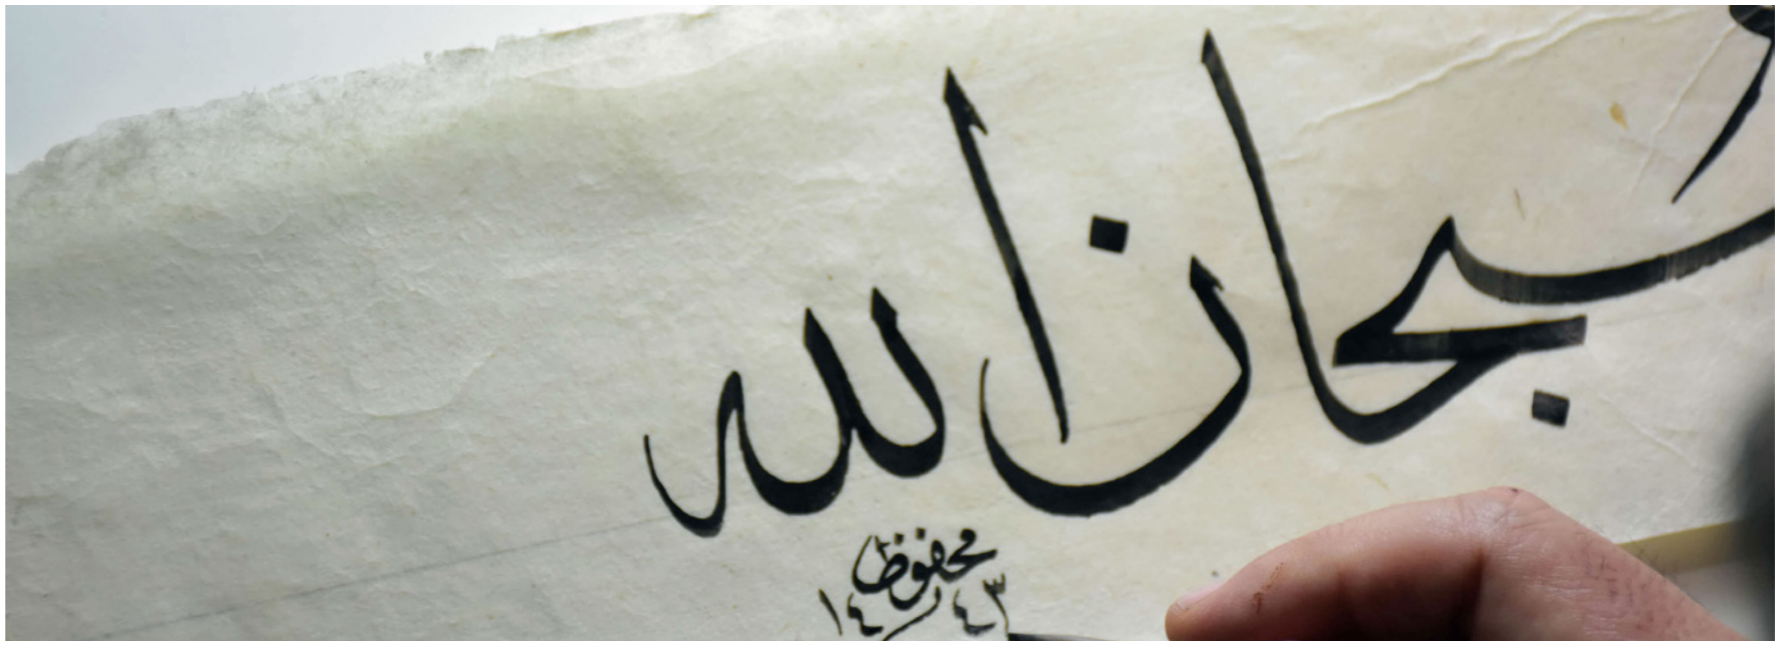 سبحان الله
محفوظ
١٤٤٣